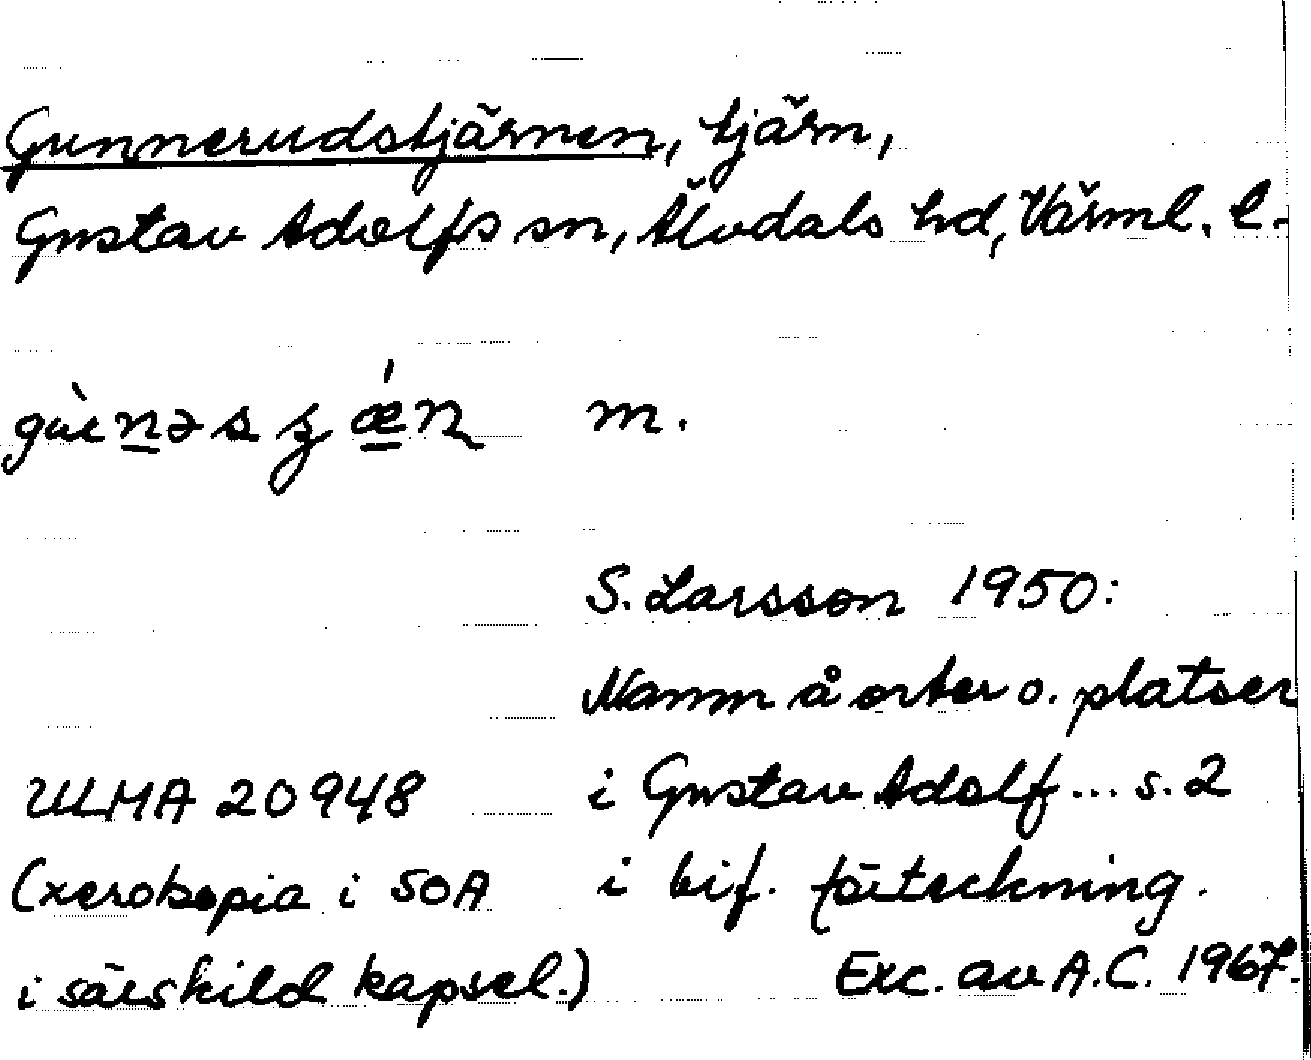 Gunnerudstjärnen, tjärn,
Gustav Adolfs sn, Älvdals hd, Värml. l.
m.
S. Larsson 1950:
Namn å orter o. platser
ULMA 20948 i Gustav Adolf... s. 2
(xerokopia i SOA i bif. förteckning.
i särskild kapsel.) Exc. av A.C. 1967.